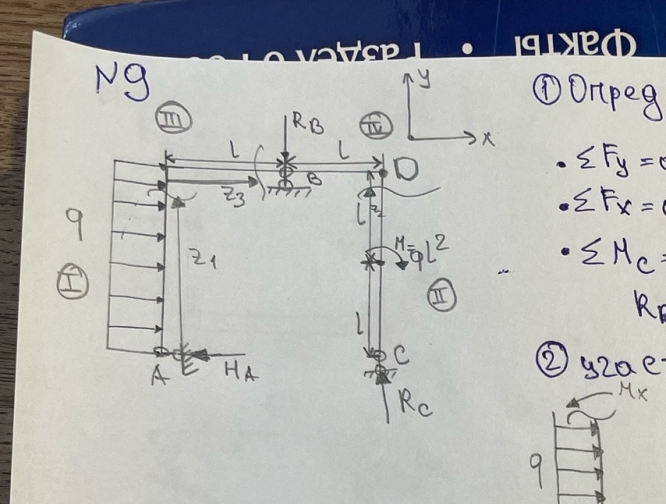 Факты • Раздел
N9
III
IV
y
x
R_B
l
l
B
D
z_3
q
I
z_1
l
z_2
M=ql²
II
l
A
H_A
C
R_C
① Опред
• ΣF_y =
• ΣF_x =
• ΣM_C =
R
②
M_x
q